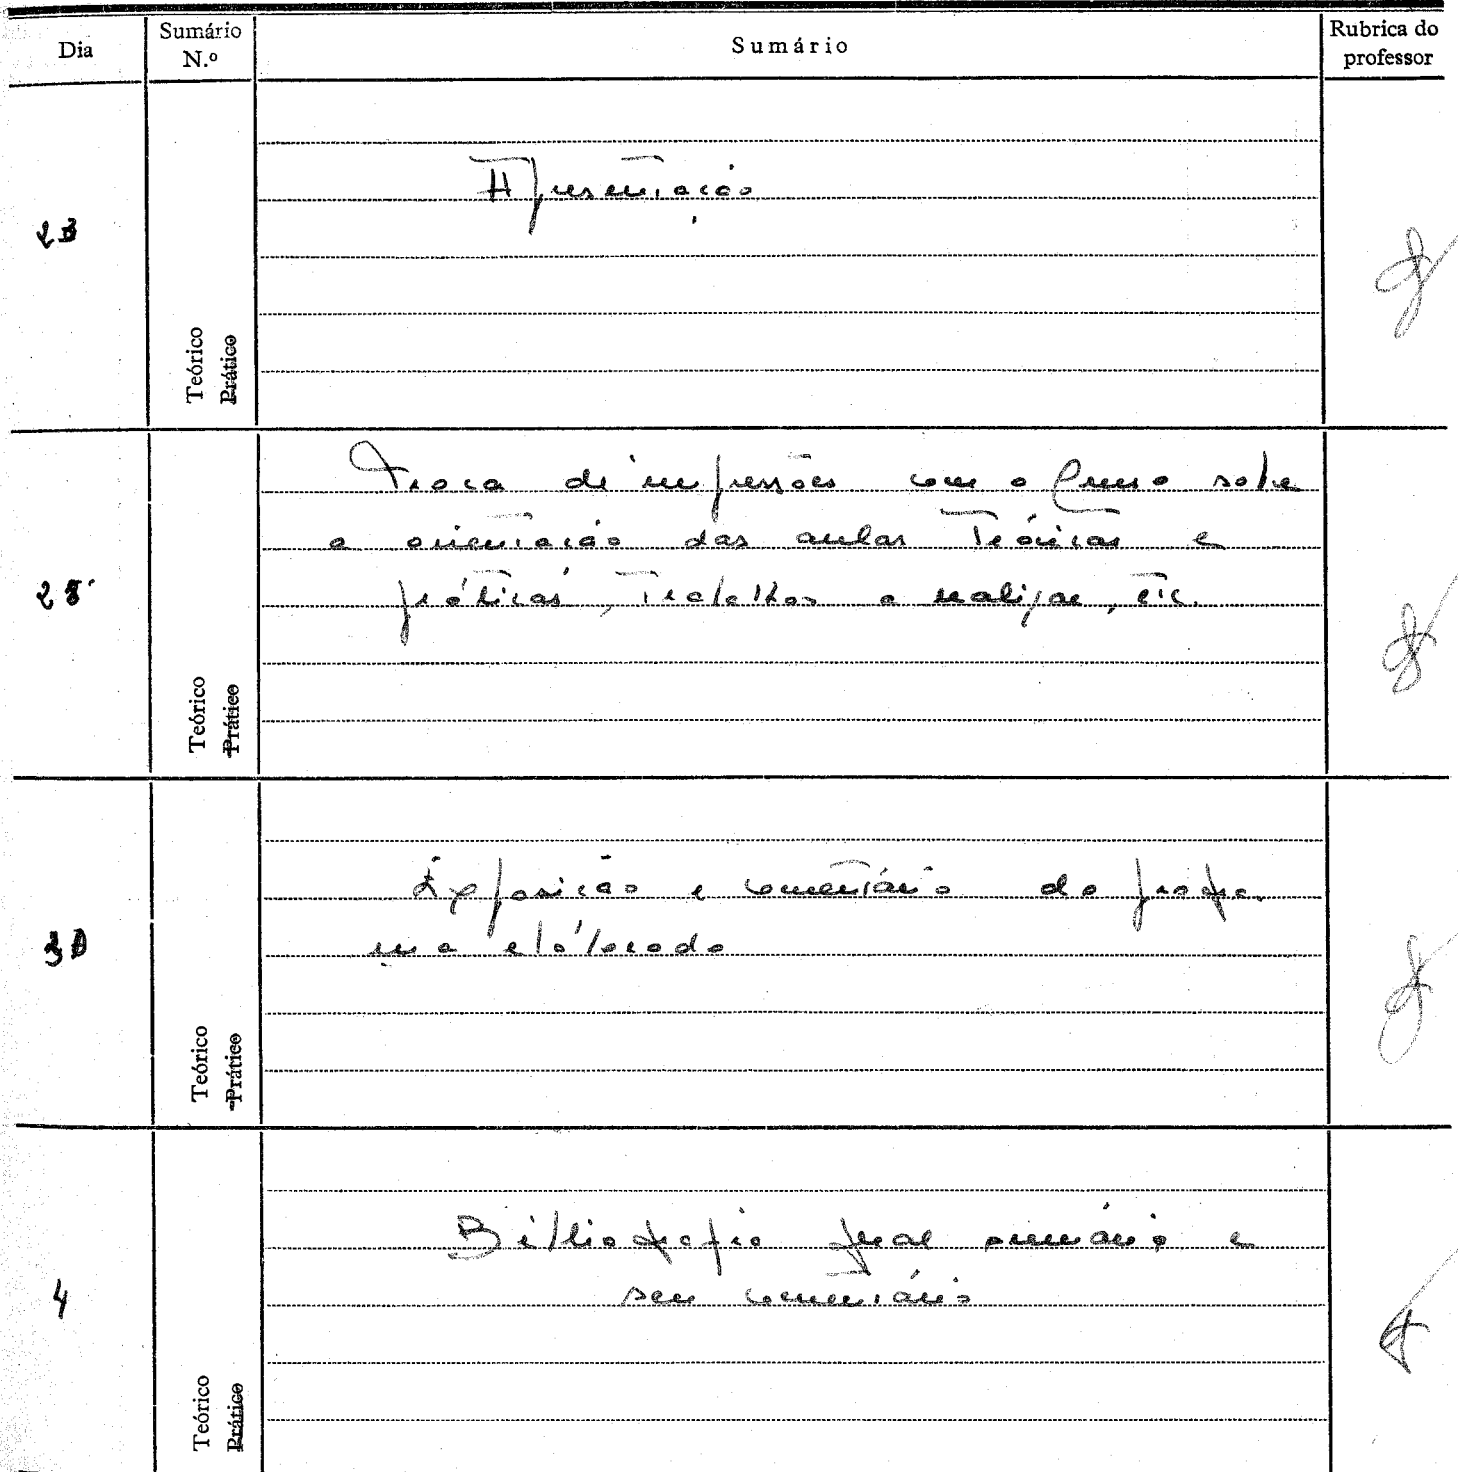 Dia
Sumário N.º
Sumário
Rubrica do professor
23
Apresentação
Teórico
Prático
Troca de impressões com o Curso sobre
a orientação das aulas teóricas e
práticas, trabalhos a realizar, etc.
Teórico
Prático
30
Exposição e comentário do progra-
ma elaborado
Teórico
Prático
4
Bibliografia geral sumária e
seu comentário
Teórico
Prático